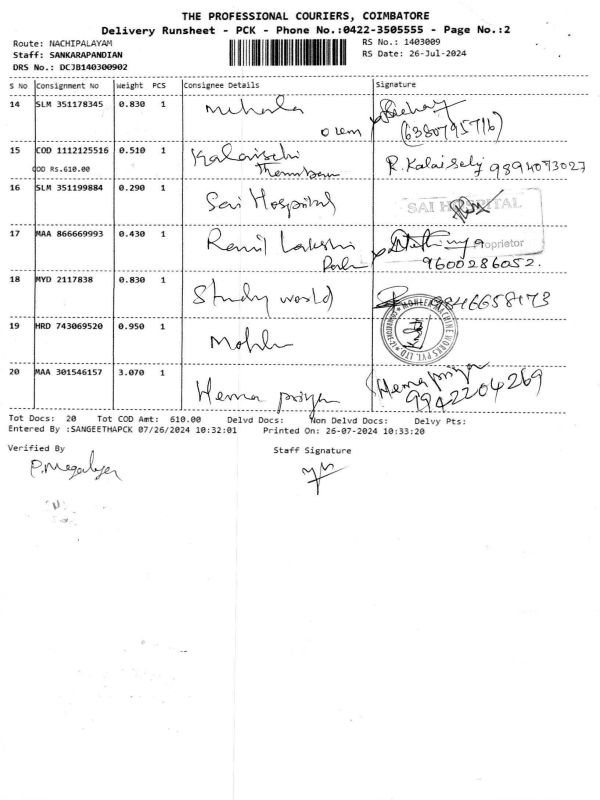 THE PROFESSIONAL COURIERS, COIMBATORE
Delivery Runsheet - PCK - Phone No.:0422-3505555 - Page No.:2
Route: NACHIPALAYAM
RS No.: 1403009
Staff: SANKARAPANDIAN
RS Date: 26-Jul-2024
DRS No.: DCJB140300902
S No Consignment No Weight PCS Consignee Details Signature
14 SLM 351178345 0.830 1
(6380795716)
15 COD 1112125516 0.510 1 Kalaiselvi R. Kalaiselvi 9894073027
COD Rs.610.00
16 SLM 351199884 0.290 1 Sai Hospital SAI HOSPITAL
17 MAA 866669993 0.430 1
Proprietor
9600286052.
18 MYD 2117838 0.830 1 Study world 9846658173
19 HRD 743069520 0.950 1 Mohler MOHLER MACHINE WORKS PVT. LTD.
20 MAA 301546157 3.070 1 Hema priya Hema priya
9942204269
Tot Docs: 20 Tot COD Amt: 610.00 Delvd Docs: Non Delvd Docs: Delvy Pts:
Entered By :SANGEETHAPCK 07/26/2024 10:32:01 Printed On: 26-07-2024 10:33:20
Verified By
Staff Signature